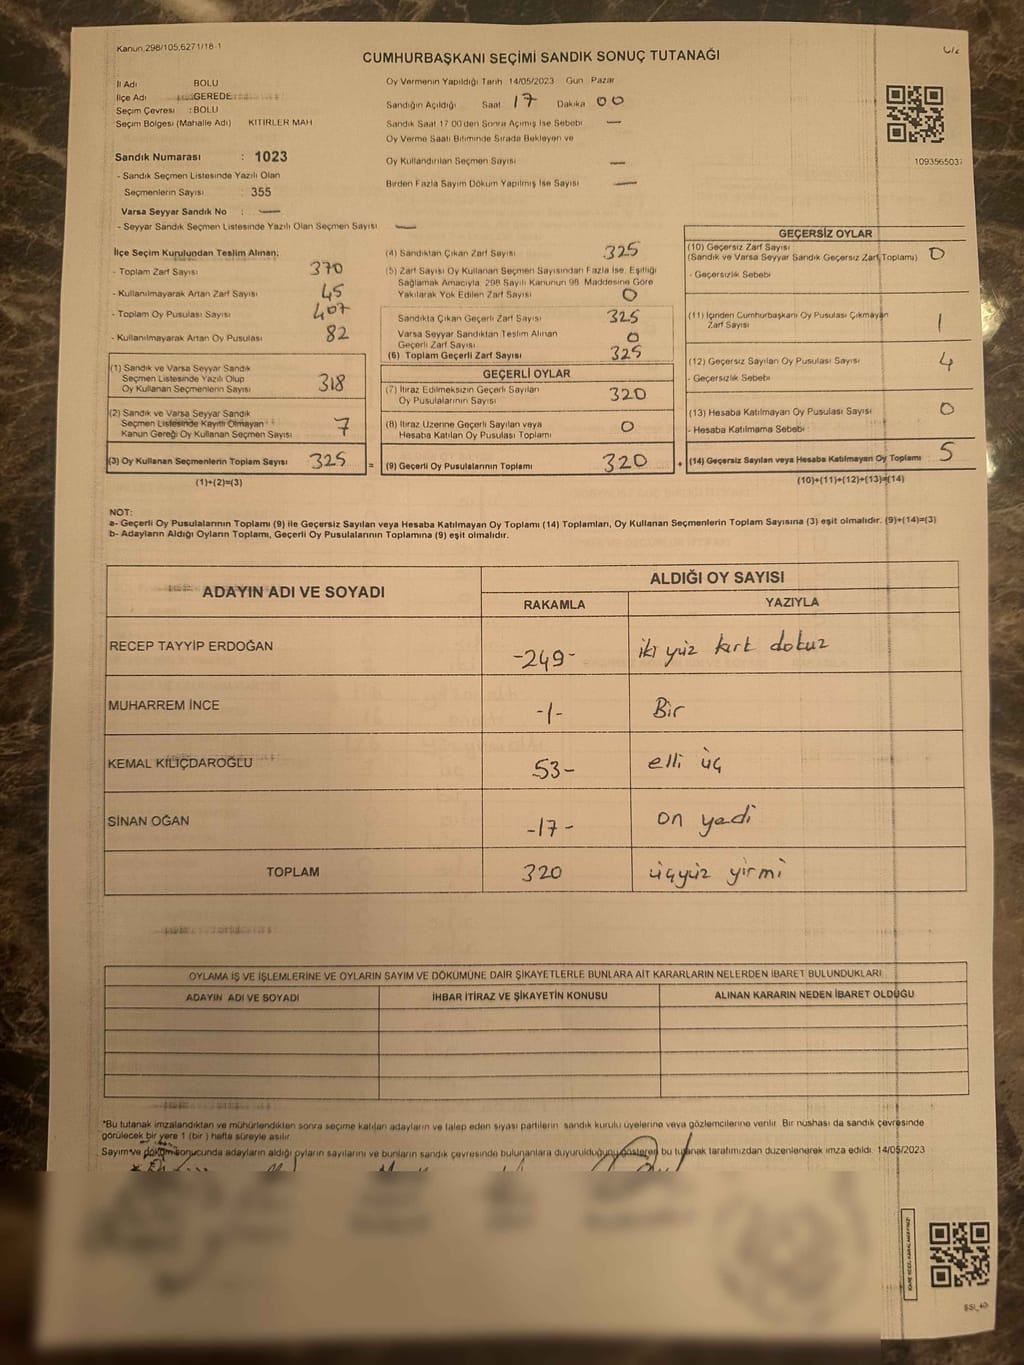 Kanun,298/105,6271/18 1
CUMHURBAŞKANI SEÇİMİ SANDIK SONUÇ TUTANAĞI
İl Adı BOLU
İlçe Adı GEREDE
Seçim Çevresi : BOLU
Seçim Bölgesi (Mahalle Adı) KITIRLER MAH
Sandık Numarası : 1023
- Sandık Seçmen Listesinde Yazılı Olan
Seçmenlerin Sayısı : 355
Varsa Seyyar Sandık No : —
- Seyyar Sandık Seçmen Listesinde Yazılı Olan Seçmen Sayısı —
Oy Vermenin Yapıldığı Tarih 14/05/2023 Gün Pazar
Sandığın Açıldığı Saat 17 Dakika 00
Sandık Saat 17 00'den Sonra Açımış İse Sebebi —
Oy Verme Saati Bitiminde Sırada Bekleyen ve
Oy Kullandırılan Seçmen Sayısı —
Birden Fazla Sayım Döküm Yapılmış İse Sayısı —
109356503
İlçe Seçim Kurulundan Teslim Alınan;
- Toplam Zarf Sayısı 370
- Kullanılmayarak Artan Zarf Sayısı 45
- Toplam Oy Pusulası Sayısı 407
- Kullanılmayarak Artan Oy Pusulası 82
(1) Sandık ve Varsa Seyyar Sandık
Seçmen Listesinde Yazılı Olup
Oy Kullanan Seçmenlerin Sayısı 318
(2) Sandık ve Varsa Seyyar Sandık
Seçmen Listesinde Kayıtlı Olmayan
Kanun Gereği Oy Kullanan Seçmen Sayısı 7
(3) Oy Kullanan Seçmenlerin Toplam Sayısı 325 =
(1)+(2)=(3)
(4) Sandıktan Çıkan Zarf Sayısı 325
(5) Zarf Sayısı Oy Kullanan Seçmen Sayısından Fazla İse, Eşitliği
Sağlamak Amacıyla 298 Sayılı Kanunun 98. Maddesine Göre
Yakılarak Yok Edilen Zarf Sayısı 0
Sandıkta Çıkan Geçerli Zarf Sayısı 325
Varsa Seyyar Sandıktan Teslim Alınan
Geçerli Zarf Sayısı 0
(6) Toplam Geçerli Zarf Sayısı 325
GEÇERLİ OYLAR
(7) İtiraz Edilmeksizin Geçerli Sayılan
Oy Pusulalarının Sayısı 320
(8) İtiraz Üzerine Geçerli Sayılan veya
Hesaba Katılan Oy Pusulası Toplamı 0
(9) Geçerli Oy Pusulalarının Toplamı 320 +
GEÇERSİZ OYLAR
(10) Geçersiz Zarf Sayısı
(Sandık ve Varsa Seyyar Sandık Geçersiz Zarf Toplamı) 0
- Geçersizlik Sebebi
(11) İçinden Cumhurbaşkanı Oy Pusulası Çıkmayan
Zarf Sayısı 1
(12) Geçersiz Sayılan Oy Pusulası Sayısı 4
- Geçersizlik Sebebi
(13) Hesaba Katılmayan Oy Pusulası Sayısı 0
- Hesaba Katılmama Sebebi :
(14) Geçersiz Sayılan veya Hesaba Katılmayan Oy Toplamı 5
(10)+(11)+(12)+(13)=(14)
NOT:
a- Geçerli Oy Pusulalarının Toplamı (9) ile Geçersiz Sayılan veya Hesaba Katılmayan Oy Toplamı (14) Toplamları, Oy Kullanan Seçmenlerin Toplam Sayısına (3) eşit olmalıdır. (9)+(14)=(3)
b- Adayların Aldığı Oyların Toplamı, Geçerli Oy Pusulalarının Toplamına (9) eşit olmalıdır.
ADAYIN ADI VE SOYADI
ALDIĞI OY SAYISI
RAKAMLA YAZIYLA
RECEP TAYYİP ERDOĞAN -249- iki yüz kırk dokuz
MUHARREM İNCE -1- Bir
KEMAL KILIÇDAROĞLU 53- elli üç
SİNAN OĞAN -17- on yedi
TOPLAM 320 üçyüz yirmi
OYLAMA İŞ VE İŞLEMLERİNE VE OYLARIN SAYIM VE DÖKÜMÜNE DAİR ŞİKAYETLERLE BUNLARA AİT KARARLARIN NELERDEN İBARET BULUNDUKLARI
ADAYIN ADI VE SOYADI İHBAR İTİRAZ VE ŞİKAYETİN KONUSU ALINAN KARARIN NEDEN İBARET OLDUĞU
*Bu tutanak imzalandıktan ve mühürlendikten sonra seçime katılan adayların ve talep eden siyasi partilerin sandık kurulu üyelerine veya gözlemcilerine verilir. Bir nüshası da sandık çevresinde
görülecek bir yere 1 (bir ) hafta süreyle asılır.
Sayım ve döküm sonucunda adayların aldığı oyların sayılarını ve bunların sandık çevresinde bulunanlara duyurulduğunu gösteren bu tutanak tarafımızdan düzenlenerek imza edildi. 14/05/2023